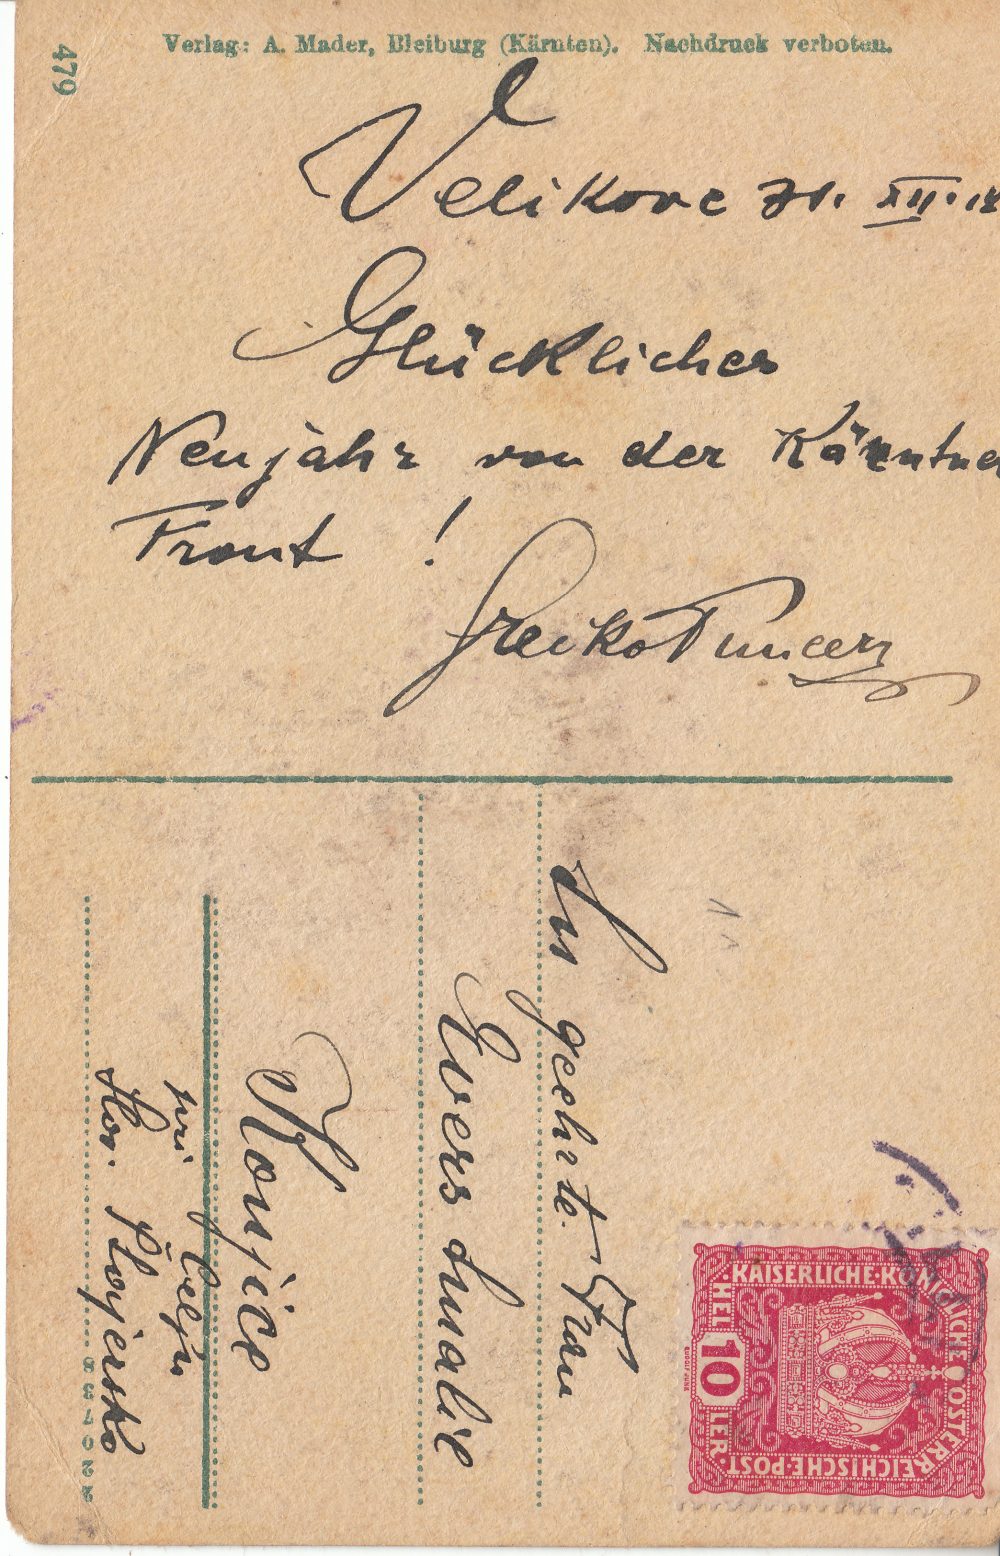 Verlag: A. Mader, Bleiburg (Kärnten). Nachdruck verboten.
479
Velikovc 31. XII. 18
Glücklicher
Neujahr von der Kärntner
Front !
geehrte Frau
Evers Amalie
Konjice
pri Celju
Štajersko
KAISERLICHE·KÖNIGLICHE ÖSTERREICHISCHE·POST
HEL 10 LER